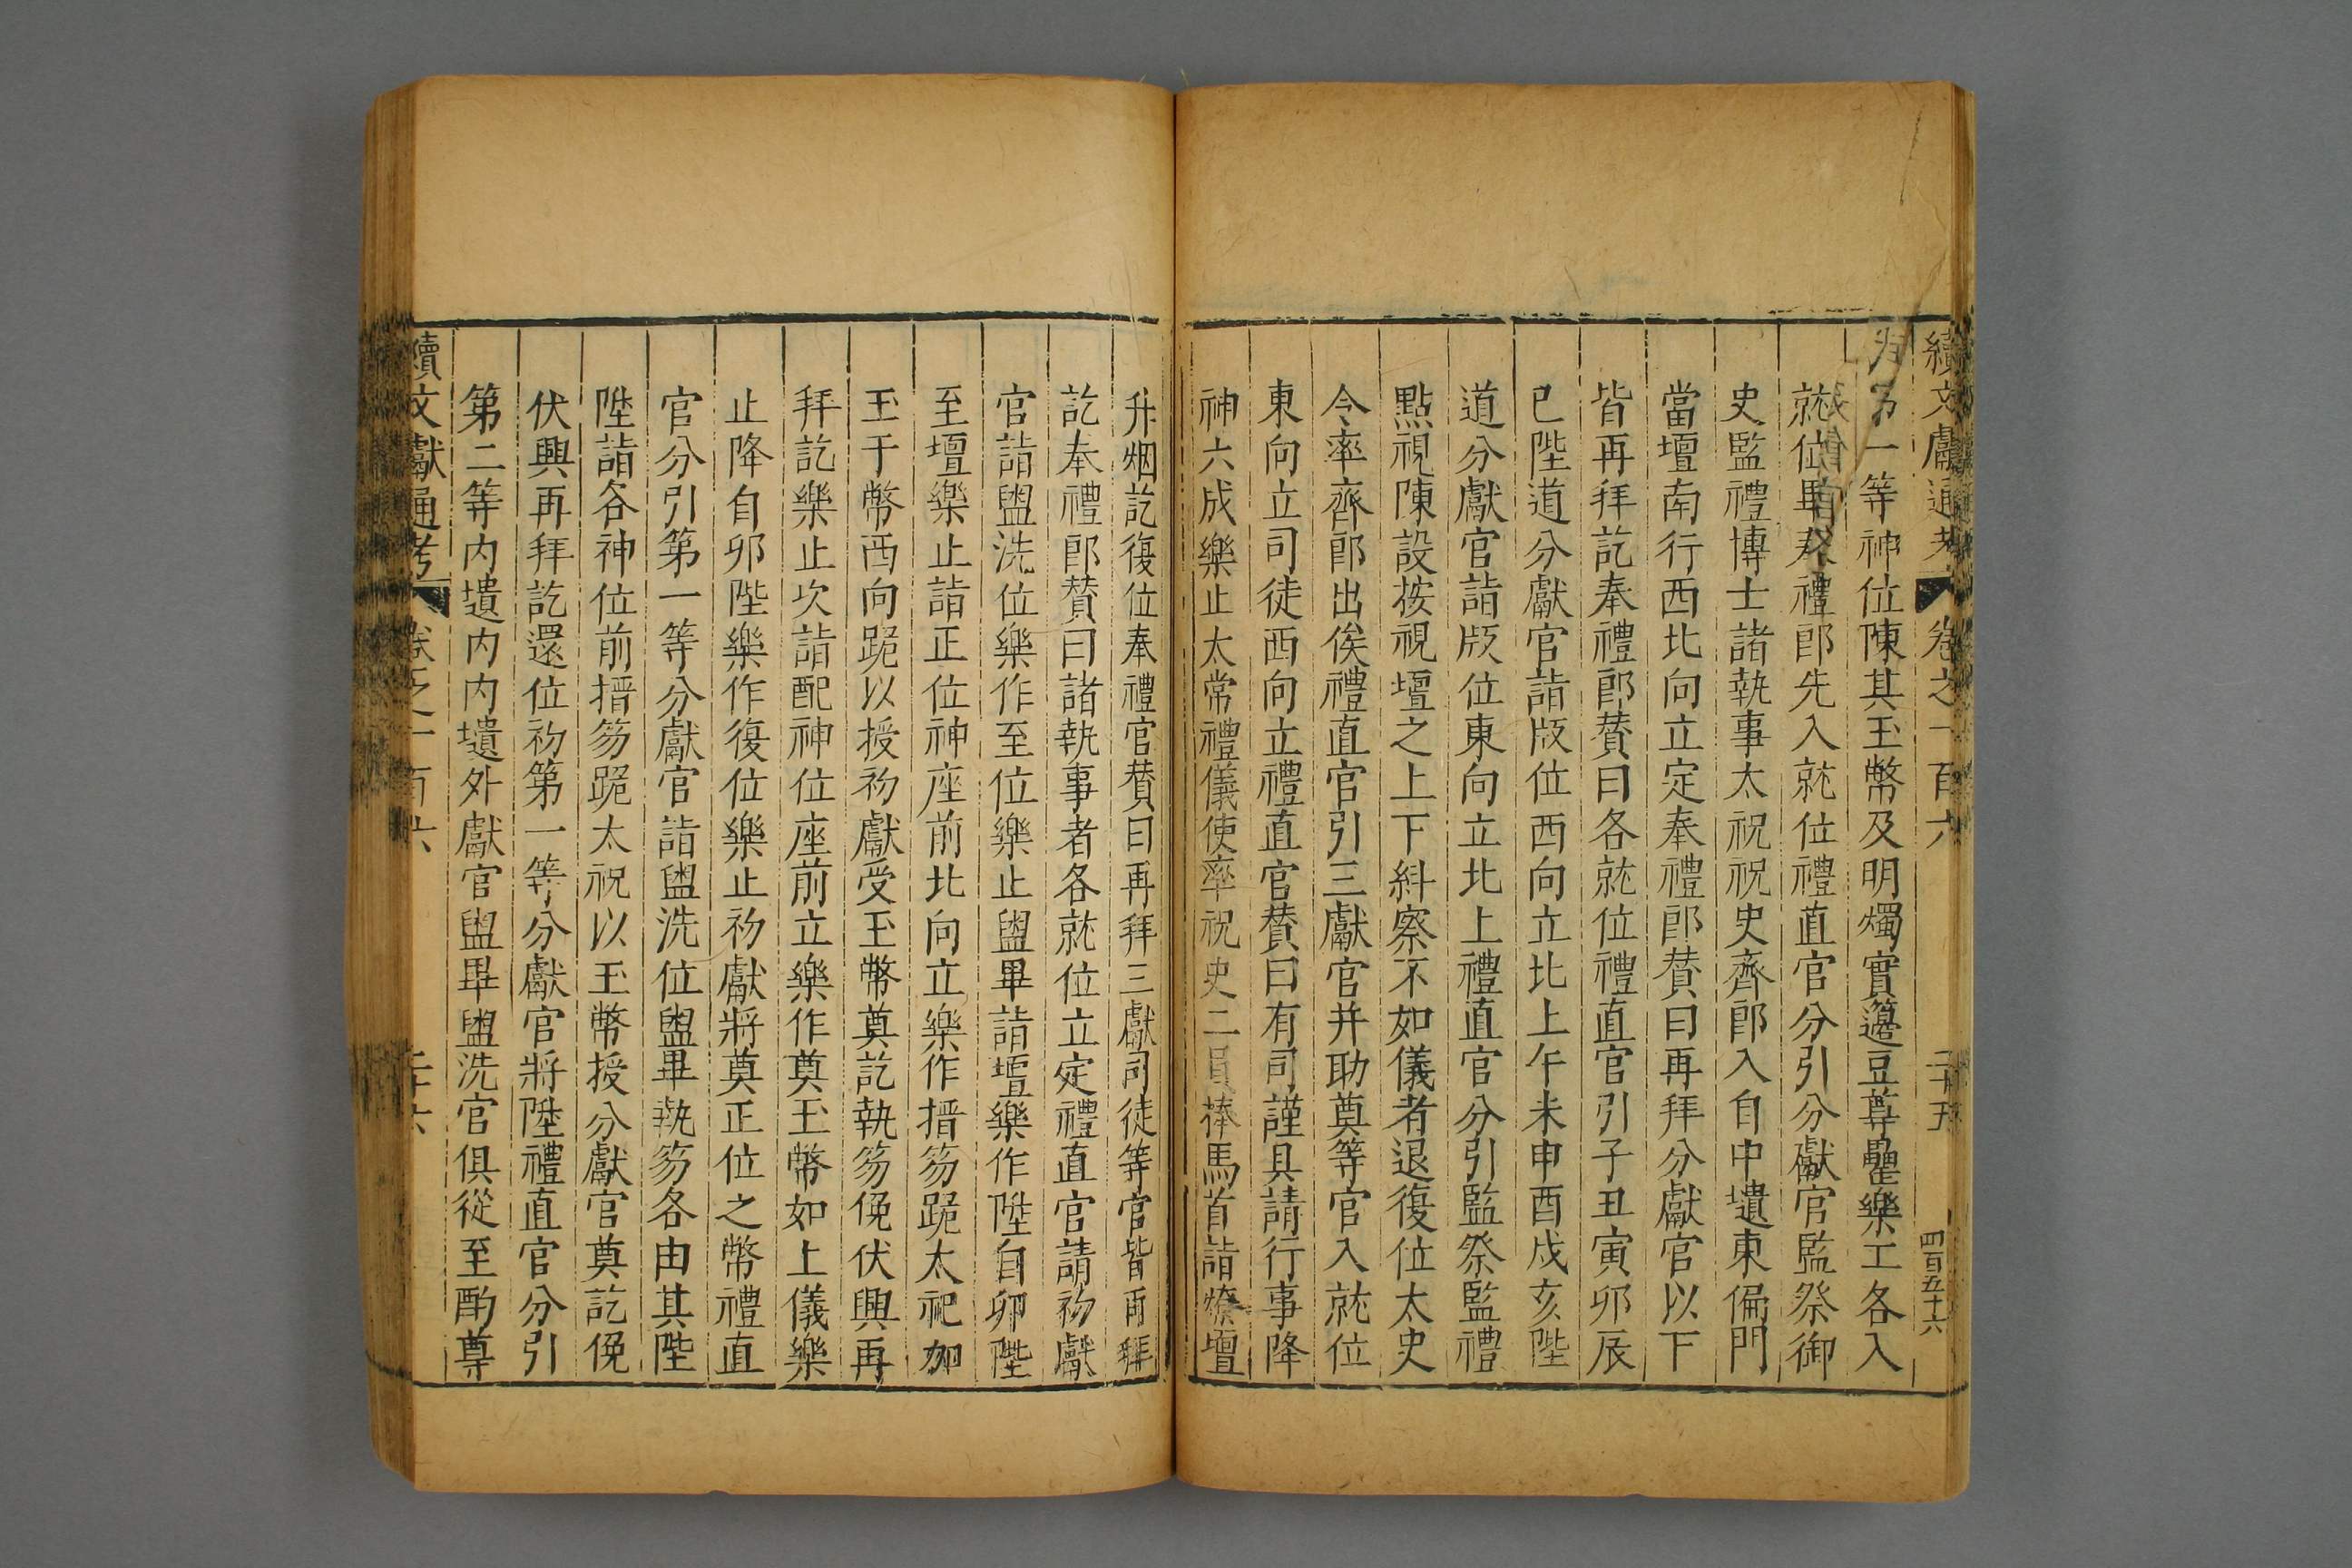 續文獻通考 卷之一百六 二十五 四百五十六
第一等神位陳其玉幣及明燭實籩豆尊罍樂工各入
就位畢奉禮郎先入就位禮直官分引分獻官監祭御
史監禮博士諸執事太祝祝史齊郎入自中壝東偏門
當壇南行西北向立定奉禮郎賛曰再拜分獻官以下
皆再拜訖奉禮郎賛曰各就位禮直官引子丑寅卯辰
巳陛道分獻官詣版位西向立北上午未申酉戌亥陛
道分獻官詣版位東向立北上禮直官分引監祭監禮
點視陳設按視壇之上下糾察不如儀者退復位太史
令率齊郎出俟禮直官引三獻官并助奠等官入就位
東向立司徒西向立禮直官賛曰有司謹具請行事降
神六成樂止太常禮儀使率祝史二員捧馬首詣燎壇
升烟訖復位奉禮官賛曰再拜三獻司徒等官皆再拜
訖奉禮郎賛曰諸執事者各就位立定禮直官請初獻
官詣盥洗位樂作至位樂止盥畢詣壇樂作陞自卯陛
至壇樂止詣正位神座前北向立樂作搢笏跪太祀加
玉于幣西向跪以授初獻受玉幣奠訖執笏俛伏興再
拜訖樂止次詣配神位座前立樂作奠玉幣如上儀樂
止降自卯陛樂作復位樂止初獻將奠正位之幣禮直
官分引第一等分獻官詣盥洗位盥畢執笏各由其陛
陞詣各神位前搢笏跪太祝以玉幣授分獻官奠訖俛
伏興再拜訖還位初第一等分獻官將陞禮直官分引
第二等内壝内内壝外獻官盥畢盥洗官俱從至酌尊
續文獻通考 卷之一百六 二十六